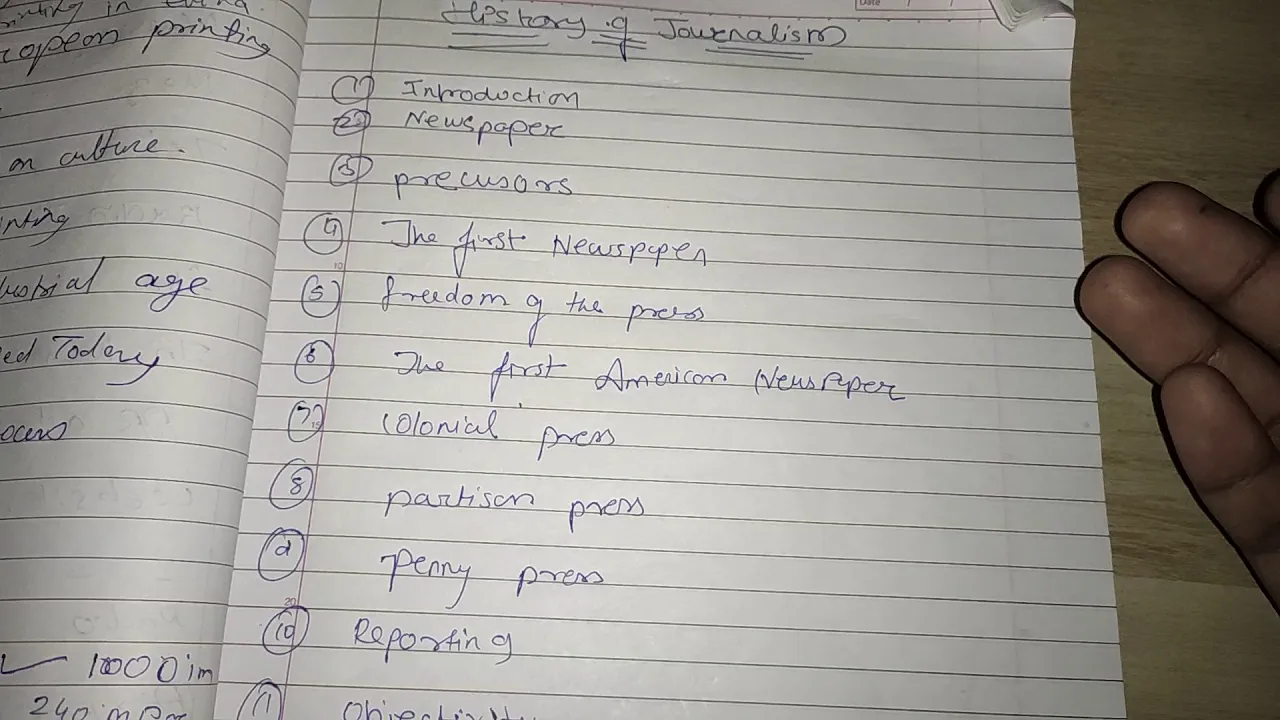 printing in
ropean printing
on culture.
inting
ustrial age
ed Today
History of Journalism
Date
① Introduction
② Newspaper
③ precusors
④ The first Newspaper
⑤ freedom of the press
⑥ The first American Newspaper
⑦ Colonial press
⑧ partison press
⑨ Penny press
⑩ Reporting
⑪ Objectivity
1000 im